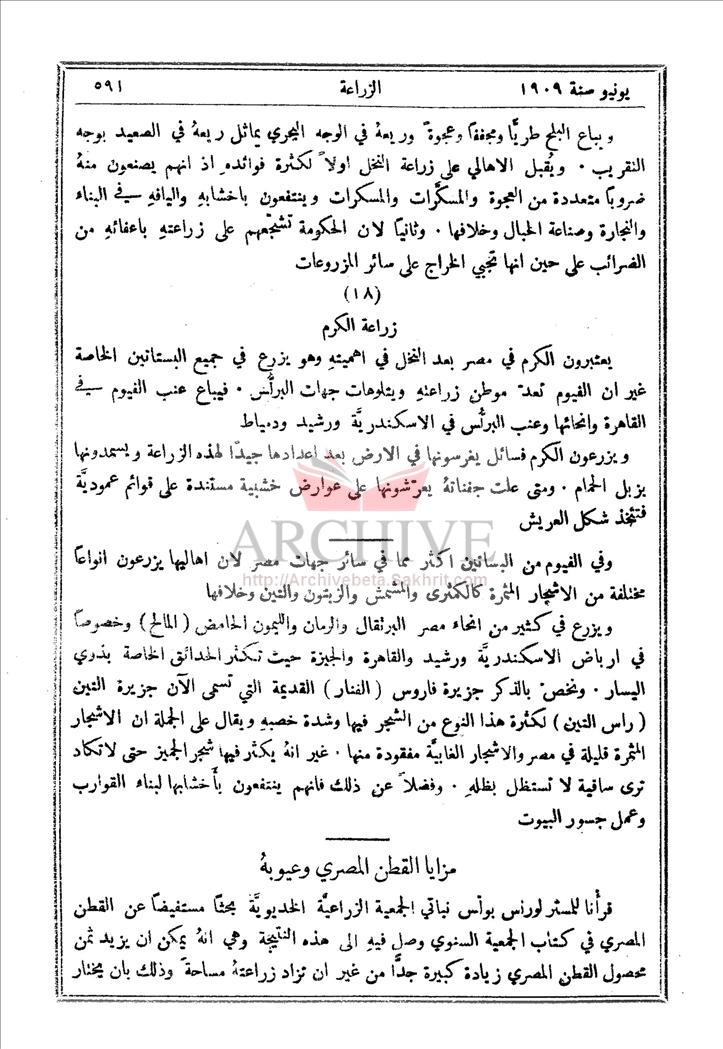 يونيو سنة ١٩٠٩ الزراعة ٥٩١
ويباع البلح طريًّا ومجففًا وعجوةً وريعهُ في الوجه البحري يماثل ريعهُ في الصعيد بوجه
التقريب . ويُقبل الاهالي على زراعة النخل اولاً لكثرة فوائدهِ اذ انهم يصنعون منهُ
ضروبًا متعددة من العجوة والمسكَّرات والمسكرات وينتفعون باخشابهِ واليافهِ في البناء
والنجارة وصناعة الحبال وخلافها . وثانيًا لان الحكومة تشجّعهم على زراعتهِ باعفائهِ من
الضرائب على حين انها تجبي الخراج على سائر المزروعات
(١٨)
زراعة الكرم
يعتبرون الكرم في مصر بعد النخل في اهميتهِ وهو يزرع في جميع البستانين الخاصة
غير ان الفيوم تعدّ موطن زراعتهِ ويتلوها جهات البرلُّس . فيباع عنب الفيوم في
القاهرة وانحائها وعنب البرلُّس في الاسكندريَّة ورشيد ودمياط
ويزرعون الكرم فسائل يغرسونها في الارض بعد اعدادها جيدًا لهذه الزراعة ويسمدونها
بزبل الحمام . ومتى علت جفناتهُ يعرّشونها على عوارض خشبية مستندة على قوائم عموديَّة
فتتخذ شكل العريش
ARCHIVE
وفي الفيوم من البساتين اكثر مما في سائر جهات مصر لان اهاليها يزرعون انواعًا
http://Archivebeta.Sakhrit.com
مختلفة من الاشجار المثمرة كالكمثرى والمشمش والزيتون والتين وخلافها
ويزرع في كثير من انحاء مصر البرتقال والرمان والليمون الحامض (المالح) وخصوصًا
في ارباض الاسكندريَّة ورشيد والقاهرة والجيزة حيث تكثر الحدائق الخاصة بذوي
اليسار . ونخصّ بالذكر جزيرة فاروس (الفنار) القديمة التي تسمى الآن جزيرة التين
(راس التين) لكثرة هذا النوع من الشجر فيها وشدة خصبهِ ويقال على الجملة ان الاشجار
المثمرة قليلة في مصر والاشجار الغابيَّة مفقودة منها . غير انهُ يكثر فيها شجر الجميز حتى لا تكاد
ترى ساقية لا تستظل بظلهِ . وفضلاً عن ذلك فانهم ينتفعون بأخشابها لبناء القوارب
وعمل جسور البيوت
مزايا القطن المصري وعيوبهُ
قرأنا للمستر لورنس بولس نباتي الجمعية الزراعيَّة الخديويَّة بحثًا مستفيضًا عن القطن
المصري في كتاب الجمعية السنوي وصل فيهِ الى هذه النتيجة وهي انهُ يمكن ان يزيد ثمن
محصول القطن المصري زيادة كبيرة جدًّا من غير ان تزاد زراعتهُ مساحةً وذلك بان يختار